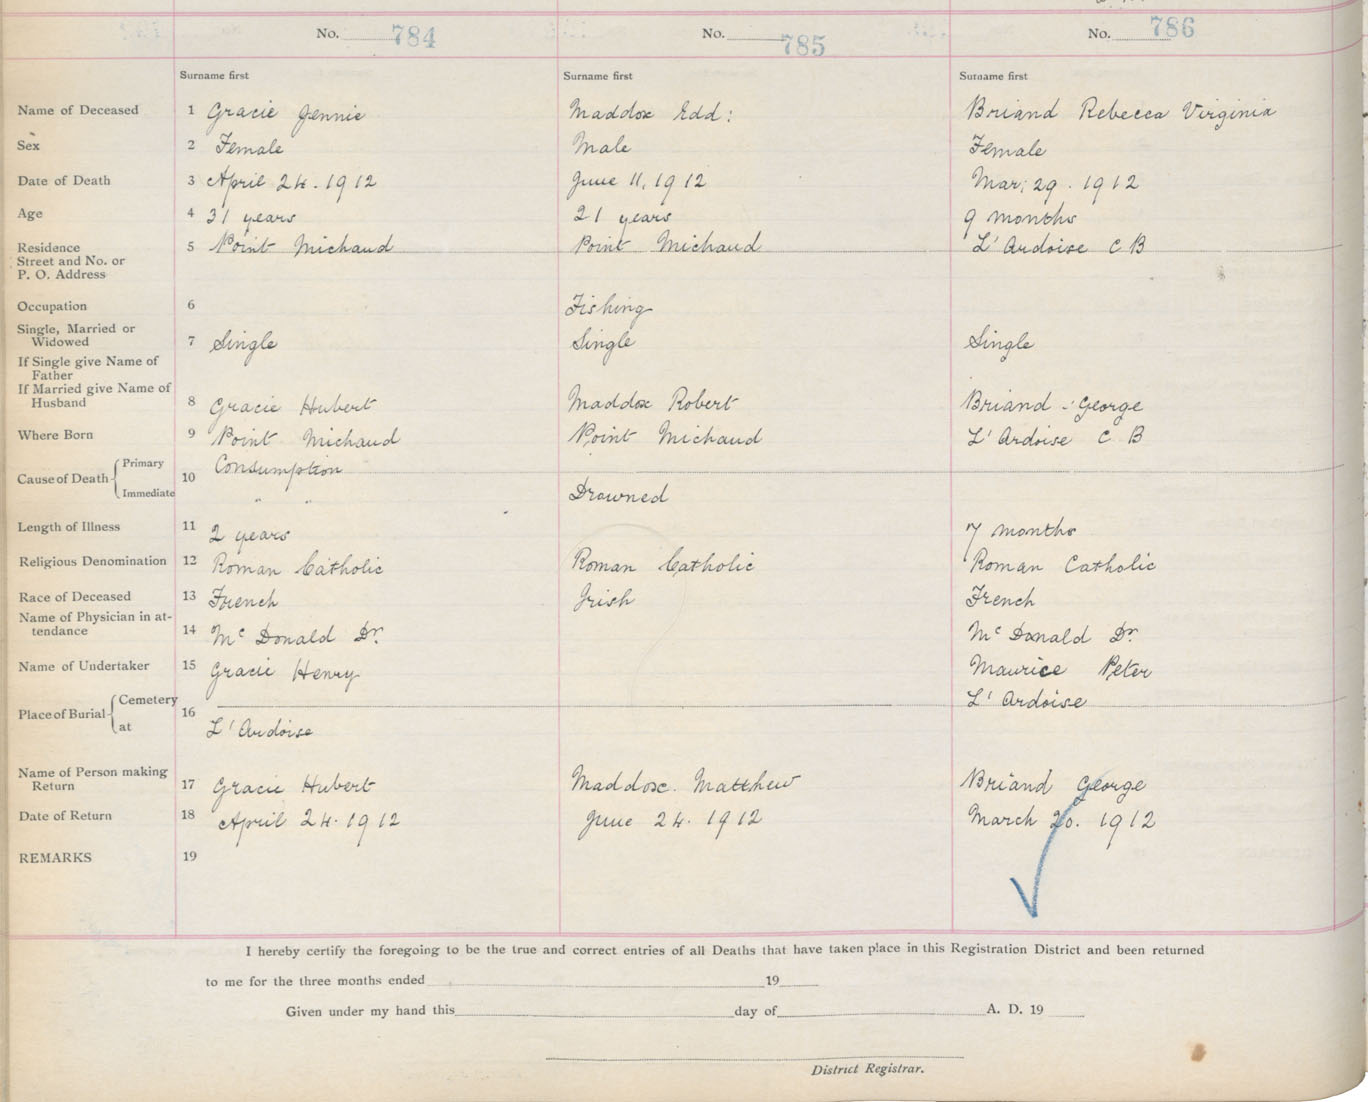 No. 784 No. 785 No. 786
Surname first Surname first Surname first
Name of Deceased 1 Gracie Jennie Maddox Edd: Briand Rebecca Virginia
Sex 2 Female Male Female
Date of Death 3 April 24. 1912 June 11, 1912 Mar: 29. 1912
Age 4 31 years 21 years 9 months
Residence 5 Point Michaud Point Michaud L'Ardoise C B
Street and No. or
P. O. Address
Occupation 6 Fishing
Single, Married or
Widowed 7 Single Single Single
If Single give Name of
Father
If Married give Name of
Husband 8 Gracie Hubert Maddox Robert Briand - George
Where Born 9 Point Michaud Point Michaud L'Ardoise C B
Cause of Death Primary 10 Consumption
Immediate " " Drowned
Length of Illness 11 2 years 7 months
Religious Denomination 12 Roman Catholic Roman Catholic Roman Catholic
Race of Deceased 13 French Irish French
Name of Physician in at-
tendance 14 Mc Donald Dr. Mc Donald Dr.
Name of Undertaker 15 Gracie Henry Maurice Peter
Place of Burial Cemetery 16 L'Ardoise
at L'Ardoise
Name of Person making
Return 17 Gracie Hubert Maddox. Matthew Briand George
Date of Return 18 April 24. 1912 June 24. 1912 March 20. 1912
REMARKS 19
I hereby certify the foregoing to be the true and correct entries of all Deaths that have taken place in this Registration District and been returned
to me for the three months ended 19
Given under my hand this day of A. D. 19
District Registrar.